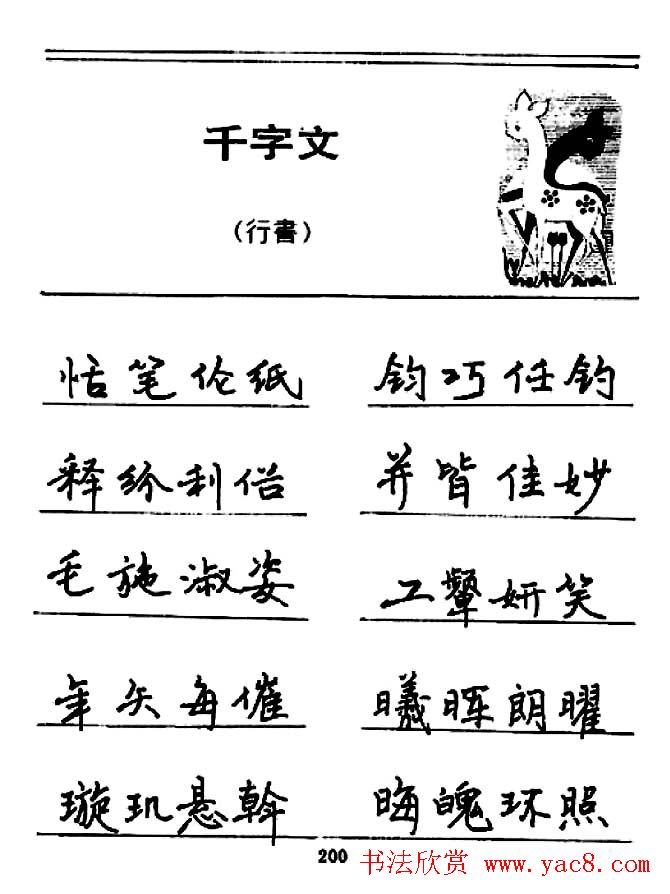 千字文
（行書）
恬笔伦纸 钧巧任钓
释纷利俗 并皆佳妙
毛施淑姿 工颦妍笑
年矢每催 曦晖朗曜
璇玑悬斡 晦魄环照
200 书法欣赏 www.yac8.com